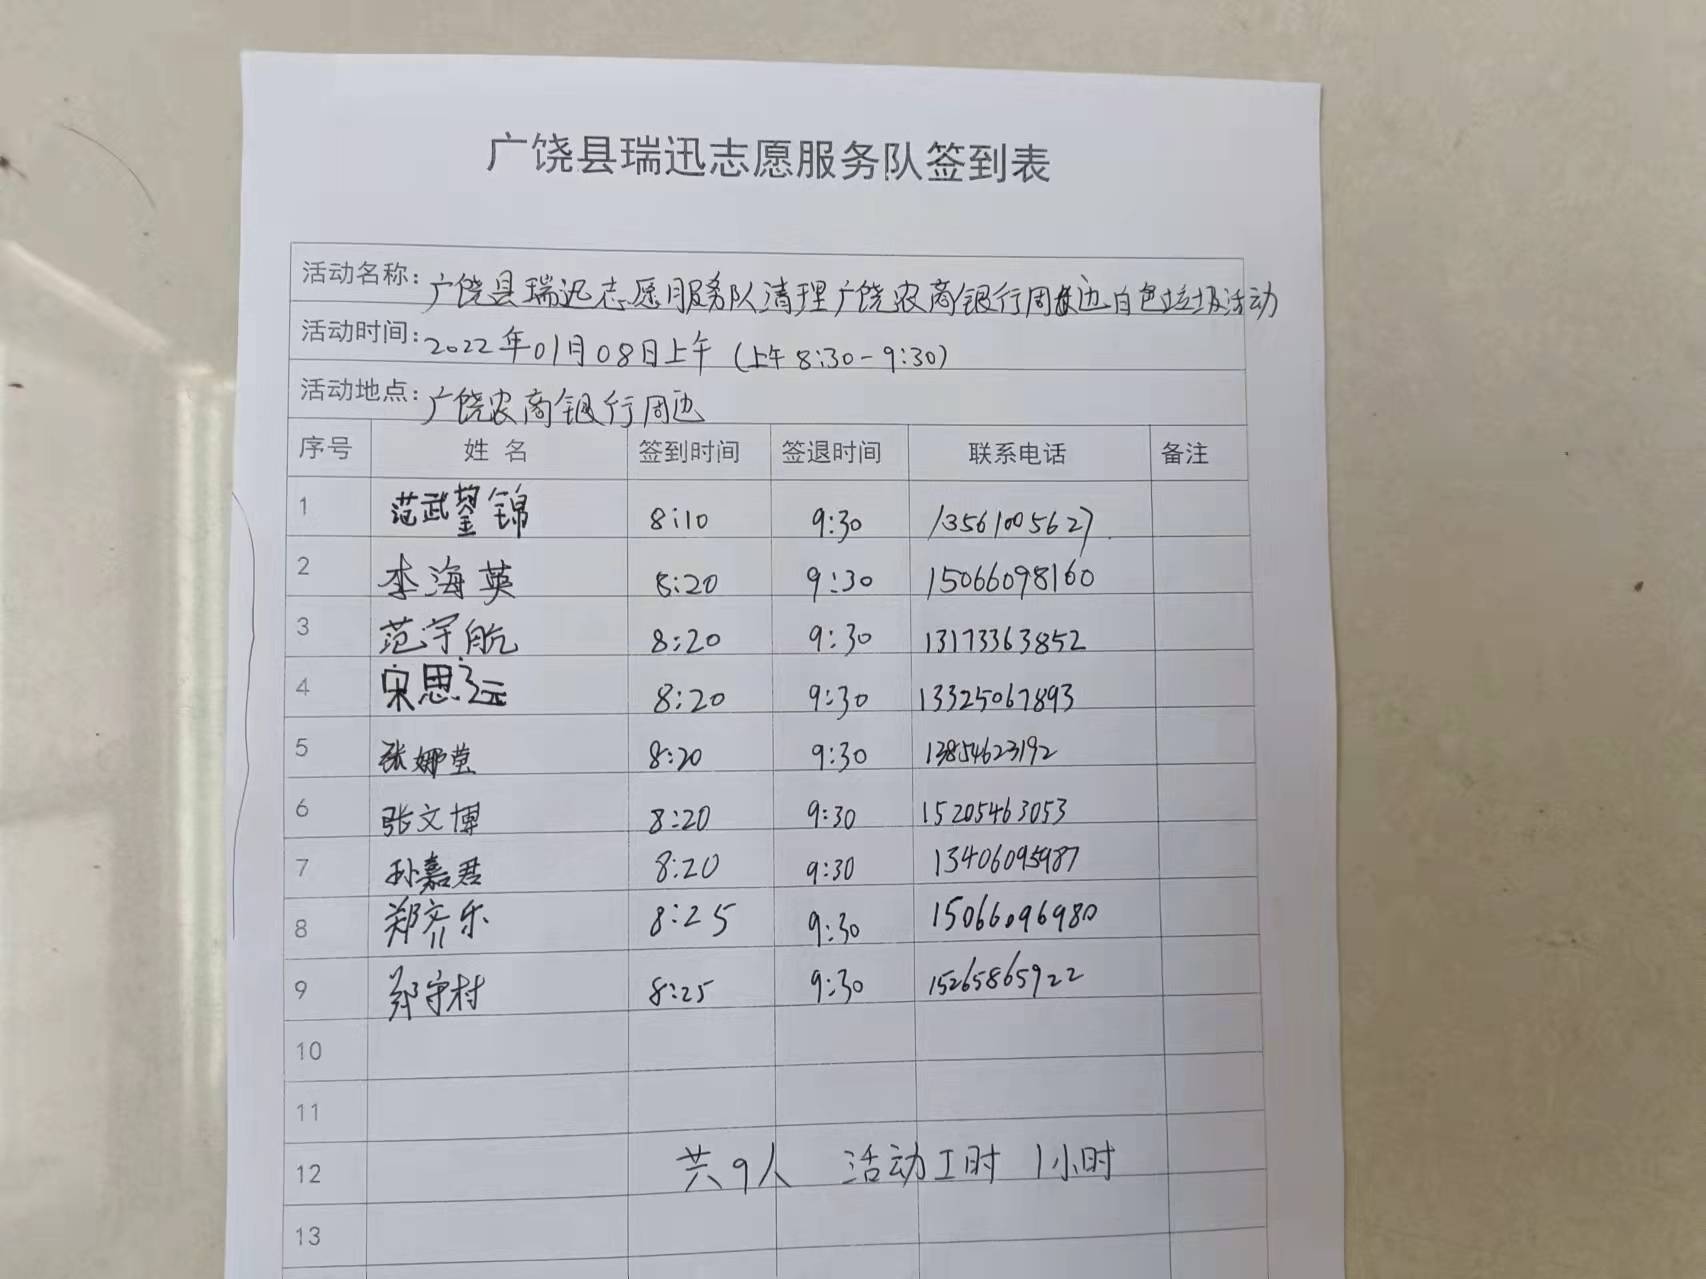 广饶县瑞迅志愿服务队签到表
活动名称：广饶县瑞迅志愿服务队清理广饶农商银行周边白色垃圾活动
活动时间：2022年01月08日上午（上午8:30-9:30）
活动地点：广饶农商银行周边
序号 姓名 签到时间 签退时间 联系电话 备注
1 范武 锦 8:10 9:30 13561005627
2 李海英 8:20 9:30 15066098160
3 范宇航 8:20 9:30 13173363852
4 宋思远 8:20 9:30 13325067893
5 张娜莹 8:20 9:30 13854623192
6 张文博 8:20 9:30 15205463053
7 孙嘉君 8:20 9:30 13406095987
8 郑齐乐 8:25 9:30 15066096980
9 郑守村 8:25 9:30 15265865922
10
11
12 共9人 活动工时 1小时
13